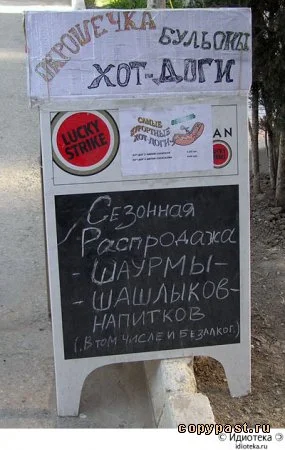 ОКРОШЕЧКА
БУЛЬОНЫ
ХОТ-ДОГИ
LUCKY
STRIKE
САМЫЕ
ХОТ-ДОГИ
AN
Сезонная
Распродажа
-ШАУРМЫ-
-ШАШЛЫКОВ-
НАПИТКОВ
(В ТОМ ЧИСЛЕ И БЕЗАЛКОГ.)
copypast.ru
© Идиотека
idioteka.ru